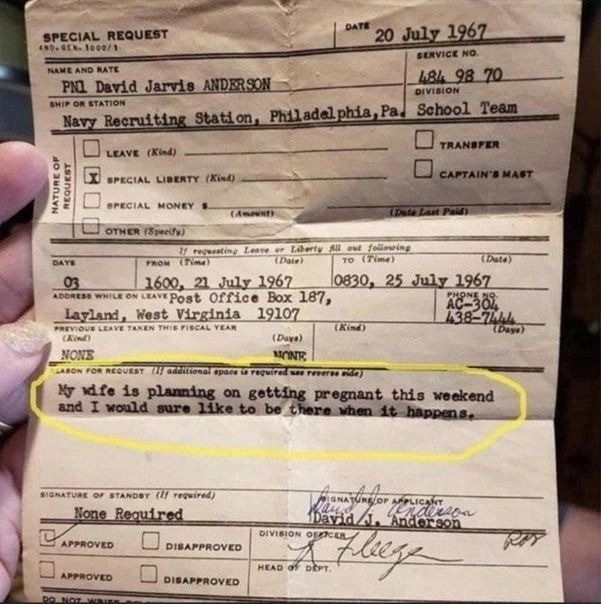 SPECIAL REQUEST
DATE 20 July 1967
4ND-GEN-1000/1
SERVICE NO.
NAME AND RATE
484 98 70
PN1 David Jarvis ANDERSON
DIVISION
SHIP OR STATION
Navy Recruiting Station, Philadelphia, Pa. School Team
NATURE OF REQUEST
LEAVE (Kind)
TRANSFER
X SPECIAL LIBERTY (Kind)
CAPTAIN'S MAST
SPECIAL MONEY $ (Amount) (Date Last Paid)
OTHER (Specify)
If requesting Leave or Liberty fill out following
DAYS FROM (Time) (Date) TO (Time) (Date)
03 1600, 21 July 1967 0830, 25 July 1967
ADDRESS WHILE ON LEAVE Post Office Box 187,
PHONE NO.
AC-304
Layland, West Virginia 19107
438-7444
PREVIOUS LEAVE TAKEN THIS FISCAL YEAR
(Kind) (Days) (Kind) (Days)
NONE NONE
REASON FOR REQUEST (If additional space is required use reverse side)
My wife is planning on getting pregnant this weekend
and I would sure like to be there when it happens.
SIGNATURE OF STANDBY (If required)
SIGNATURE OF APPLICANT
None Required
David J. Anderson
David J. Anderson
APPROVED DISAPPROVED
DIVISION OFFICER
APPROVED DISAPPROVED
HEAD OF DEPT.
DO NOT WRITE